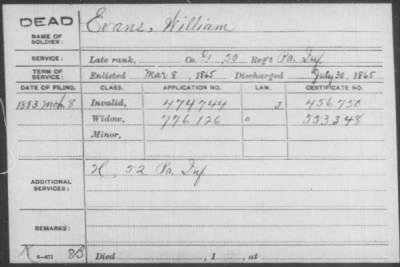 DEAD
NAME OF SOLDIER: Evans, William
SERVICE: Late rank, Co. G 50 Reg't Pa. Inf
TERM OF SERVICE: Enlisted Mar 8, 1865 Discharged July 30, 1865
DATE OF FILING. CLASS. APPLICATION NO. LAW. CERTIFICATE NO.
1883 Mch 8 Invalid, 474744 456750
Widow, 776126 553248
Minor,
ADDITIONAL SERVICES: H, 52 Pa. Inf
REMARKS:
K 83 Died , 1 , at